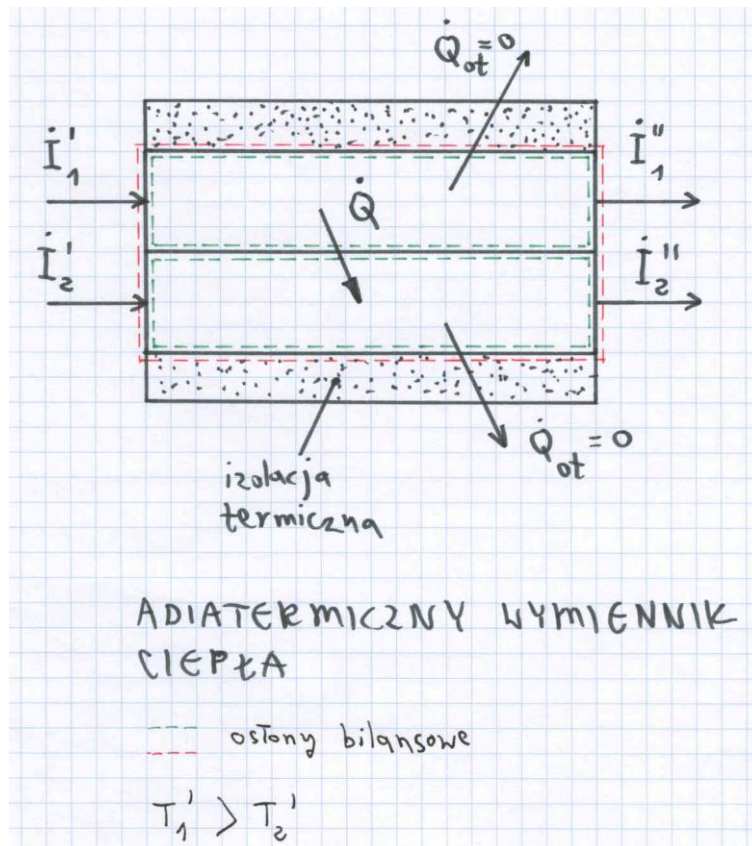 Q̇ot=0
İ1'
İ1''
Q̇
İ2'
İ2''
Q̇ot = 0
izolacja
termiczna
ADIATERMICZNY WYMIENNIK
CIEPŁA
osłony bilansowe
T1' > T2'